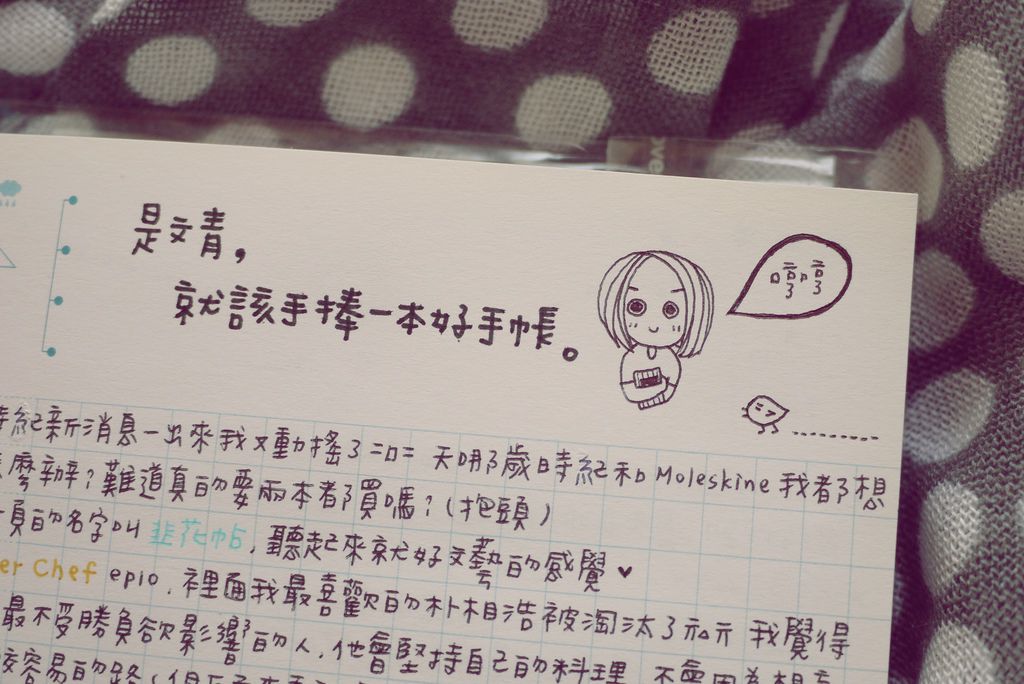 是文青,
就該手捧一本好手帳。
嘻嘻
時紀新消息一出來我又動搖了 天哪那歲時紀和Moleskine我都想
麼辦?難道真的要兩本都買嗎?(抱頭)
頁的名字叫韭花帖,聽起來就好文藝的感覺♥
er Chef epio.裡面我最喜歡的朴相浩被淘汰了 我覺得
最不受勝負欲影響的人,他會堅持自己的料理 不會因為想
容易的路